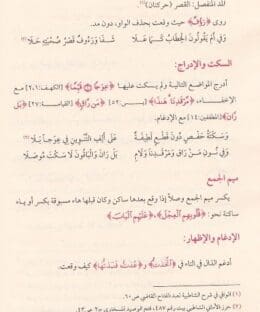 المد المنفصل: القصر (حركتان)(١).
روى ﴿رَؤُفٌ﴾ حيث وقعت بحذف الواو، دون مد.
وَفِي أَمْ يَقُولُونَ الْخِطَابُ كَمَا عَلَا شَفَا وَرَءُوفٌ قَصْرُ صُحْبَتِهِ حَلَا
السكت والإدراج:
أدرج المواضع التالية ولم يسكت عليها ﴿عِوَجًا ۜ قَيِّمًا﴾ [الكهف: ١-٢] مع
الإخفاء، ﴿مَرْقَدِنَا ۜ هَٰذَا﴾ [يس: ٥٢] ﴿مَنْ رَاقٍ﴾ [القيامة: ٢٧] ﴿بَلْ
رَانَ﴾ [المطففين: ١٤] مع الإدغام.
وَسَكْتَةُ حَفْصٍ دُونَ قَطْعٍ لَطِيفَةٌ عَلَى أَلِفِ التَّنْوِينِ فِي عِوَجًا بَلَا
وَفِي نُونِ مَنْ رَاقٍ وَمَرْقَدِنَا وَلَامِ بَلْ رَانَ وَالْبَاقُونَ لَا سَكْتَ مُوصَلَا
ميم الجمع
يكسر ميم الجمع وصلاً إذا وقع بعدها ساكن وكان قبلها هاء مسبوقة بكسر أو ياء
ساكنة نحو: ﴿قُلُوبِهِمُ الْعِجْلَ﴾، ﴿عَلَيْهِمُ الْبَابَ﴾
الإدغام والإظهار:
أدغم الذال في التاء في ﴿اتَّخَذْتُ﴾ و﴿عُذْتُ﴾ ﴿فَنَبَذْتُهَا﴾ كيف وقعت.
(١) الوافي في شرح الشاطبية لعبد الفتاح القاضي ص ٦٠.
(٢) حرز الأماني الشاطبي بيت رقم ٤٨٧،